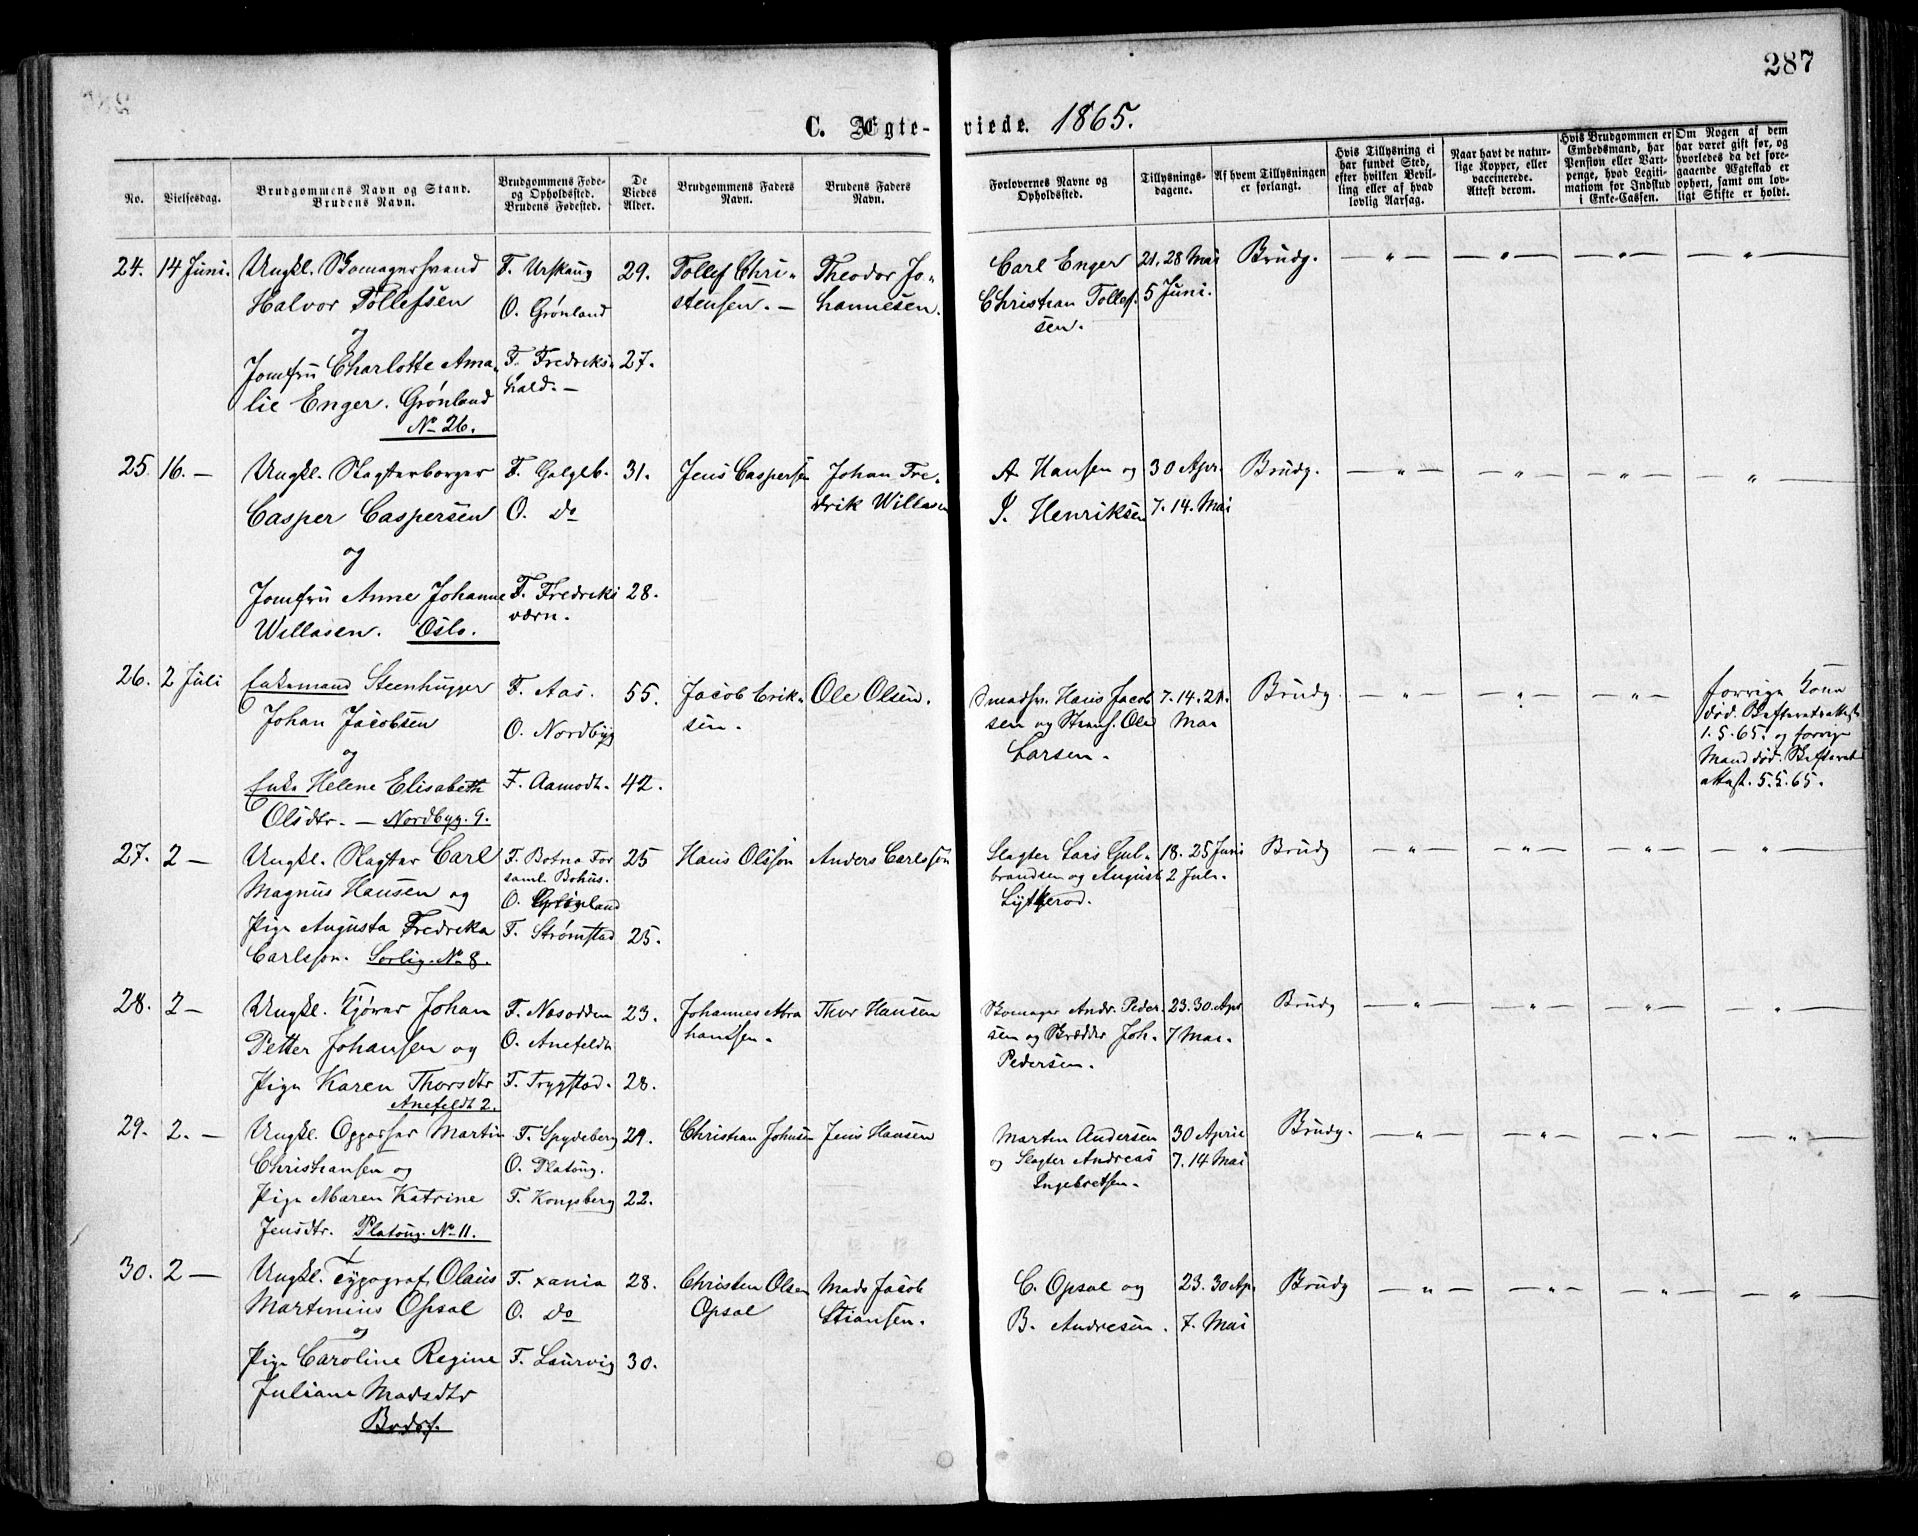 287
C. Ægte-viede. 1865.
No.
Vielsesdag.
Brudgommens Navn og Stand.
Brudens Navn.
Brudgommens Føde-
og Opholdssted.
Brudens Fødested.
De
Viedes
Alder.
Brudgommens Faders
Navn.
Brudens Faders
Navn.
Forlovernes Navne og
Opholdssted.
Tillysnings-
dagene.
Af hvem Tillysningen
er forlangt.
Hvis Tillysning ei
har fundet Sted,
efter hvilken Bevil-
ling eller af hvad
lovlig Aarsag.
Naar havt de natur-
lige Kopper, eller
vaccinerede.
Attest derom.
Hvis Brudgommen er
Embedsmand, har
Pension eller Vart-
penge, hvad Legiti-
mation for Indskud
i Enke-Cassen.
Om Nogen af dem
har været gift før, og
hvorledes da det fore-
gaaende Ægteskab er
ophørt, samt om lov-
ligt Skifte er holdt.
24. 14 Juni.
Ungkl. Skomagersvend
Halvor Tollefsen
og
Jomfru Charlotte Ama-
lie Enger. Grønland
No 26.
F. Urskoug
O. Grønland
F. Fredriks-
hald. —
29.
27.
Tollef Chri-
stensen. —
Theodor Jo-
hannesen.
Carl Enger
Christian Tollef-
sen.
21. 28 Mai
5 Juni.
Brudg.
— " — — " — — " — — " —
25. 16. —
Ungkl. Slagterborger
Casper Caspersen
og
Jomfru Anne Johanne
Willasen. Oslo.
F. Galgeb.
O. do
F. Fredriks
værn.
31.
28.
Jens Caspersen
Johan Fre-
drik Willasen
A Hansen og
J. Henriksen
30 Apr.
7. 14. Mai
Brudg.
— " — — " — — " — — " —
26. 2 Juli
Enkemand Steenhugger
Johan Jacobsen
og
Enke Helene Elisabeth
Olsdtr. — Nordbyg. 9.
F. Aas.
O. Nordbyg
F. Aamodt.
55.
42.
Jacob Erik-
sen.
Ole Olsen.
Hans Jacob
sen og Ole
Larsen.
7. 14. 21.
Mai
Brudg.
— " — — " — — " —
forrige Kone
død. Skifteretsattest
1. 5. 65. og forrige
Mand død. Skifterets
attest. 5. 5. 65.
27. 2 —
Ungkl. Slagter Carl
Magnus Hansen og
Pige Augusta Fredrika
Carlsson. Sorlig. No 8.
F. Botna For
saml. Bohus.
O. Grønland
F. Strømstad
25
25.
Hans Olsson
Anders Carlsson
Slagter Lars Gul-
brandsen og August
Lytkerød.
18. 25 Juni
2 Juli.
Brudg
— " — — " — — " — — " —
28. 2 —
Ungkl. Kjører Johan
Petter Johansen og
Pige Karen Thorsdtr
Anefeldt 2.
F. Næsodden
O. Anefeldt
F. Trygstad.
23.
28.
Johannes Abra
hamsen.
Thor Hansen
Skomager Andr. Peder-
sen og Skrædder Joh.
Pedersen.
23. 30 Apr
7 Mai.
Brudg
— " — — " — — " — — " —
29. 2. —
Ungkl. Oppasser Martin
Christiansen og
Pige Maren Katrine
Jensdtr. Platoug. No 11.
F. Spydeberg
O. Platoug.
F. Kongsberg
29.
22.
Christian Johnsen
Jens Hansen
Martin Andersen
og Slagter Andreas
Ingebretsen.
30 April
7. 14 Mai
Brudg.
— " — — " — — " — — " —
30. 2 —
Ungkl. Typograf. Olaus
Martinius Opsal
og
Pige Caroline Regine
Juliane Madsdtr
Bodsf.
F. xania
O. do
F. Laurvig
28.
30.
Christen Olsen
Opsal
Mads Jacob
Stiansen.
C. Opsal og
B. Andresen.
23. 30 Ap.
7. Mai
Brudg
— " — — " — — " — — " —